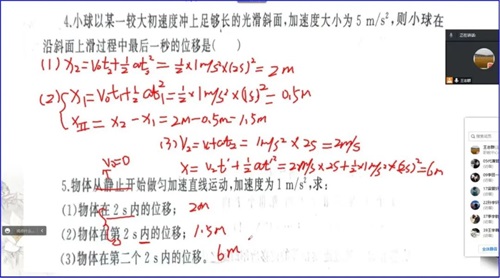 4.小球以某一较大初速度冲上足够长的光滑斜面,加速度大小为 5 m/s²,则小球在
沿斜面上滑过程中最后一秒的位移是( )
(1) x₂=v₀t₂+½at₂²=½×1m/s²×(2s)²=2m
(2) x₁=v₀t₁+½at₁²=½×1m/s²×(1s)²=0.5m
xⅡ=x₂-x₁=2m-0.5m=1.5m
(3) v₂=v₀+at₂=1m/s²×2s=2m/s
x=v₂t'+½at'²=2m/s×2s+½×1m/s²×(2s)²=6m
v₀=0
5.物体从静止开始做匀加速直线运动,加速度为 1 m/s²,求:
(1)物体在 2 s 内的位移; 2m
(2)物体在第 2 s 内的位移; 1.5m
(3)物体在第二个 2 s 内的位移. 6m